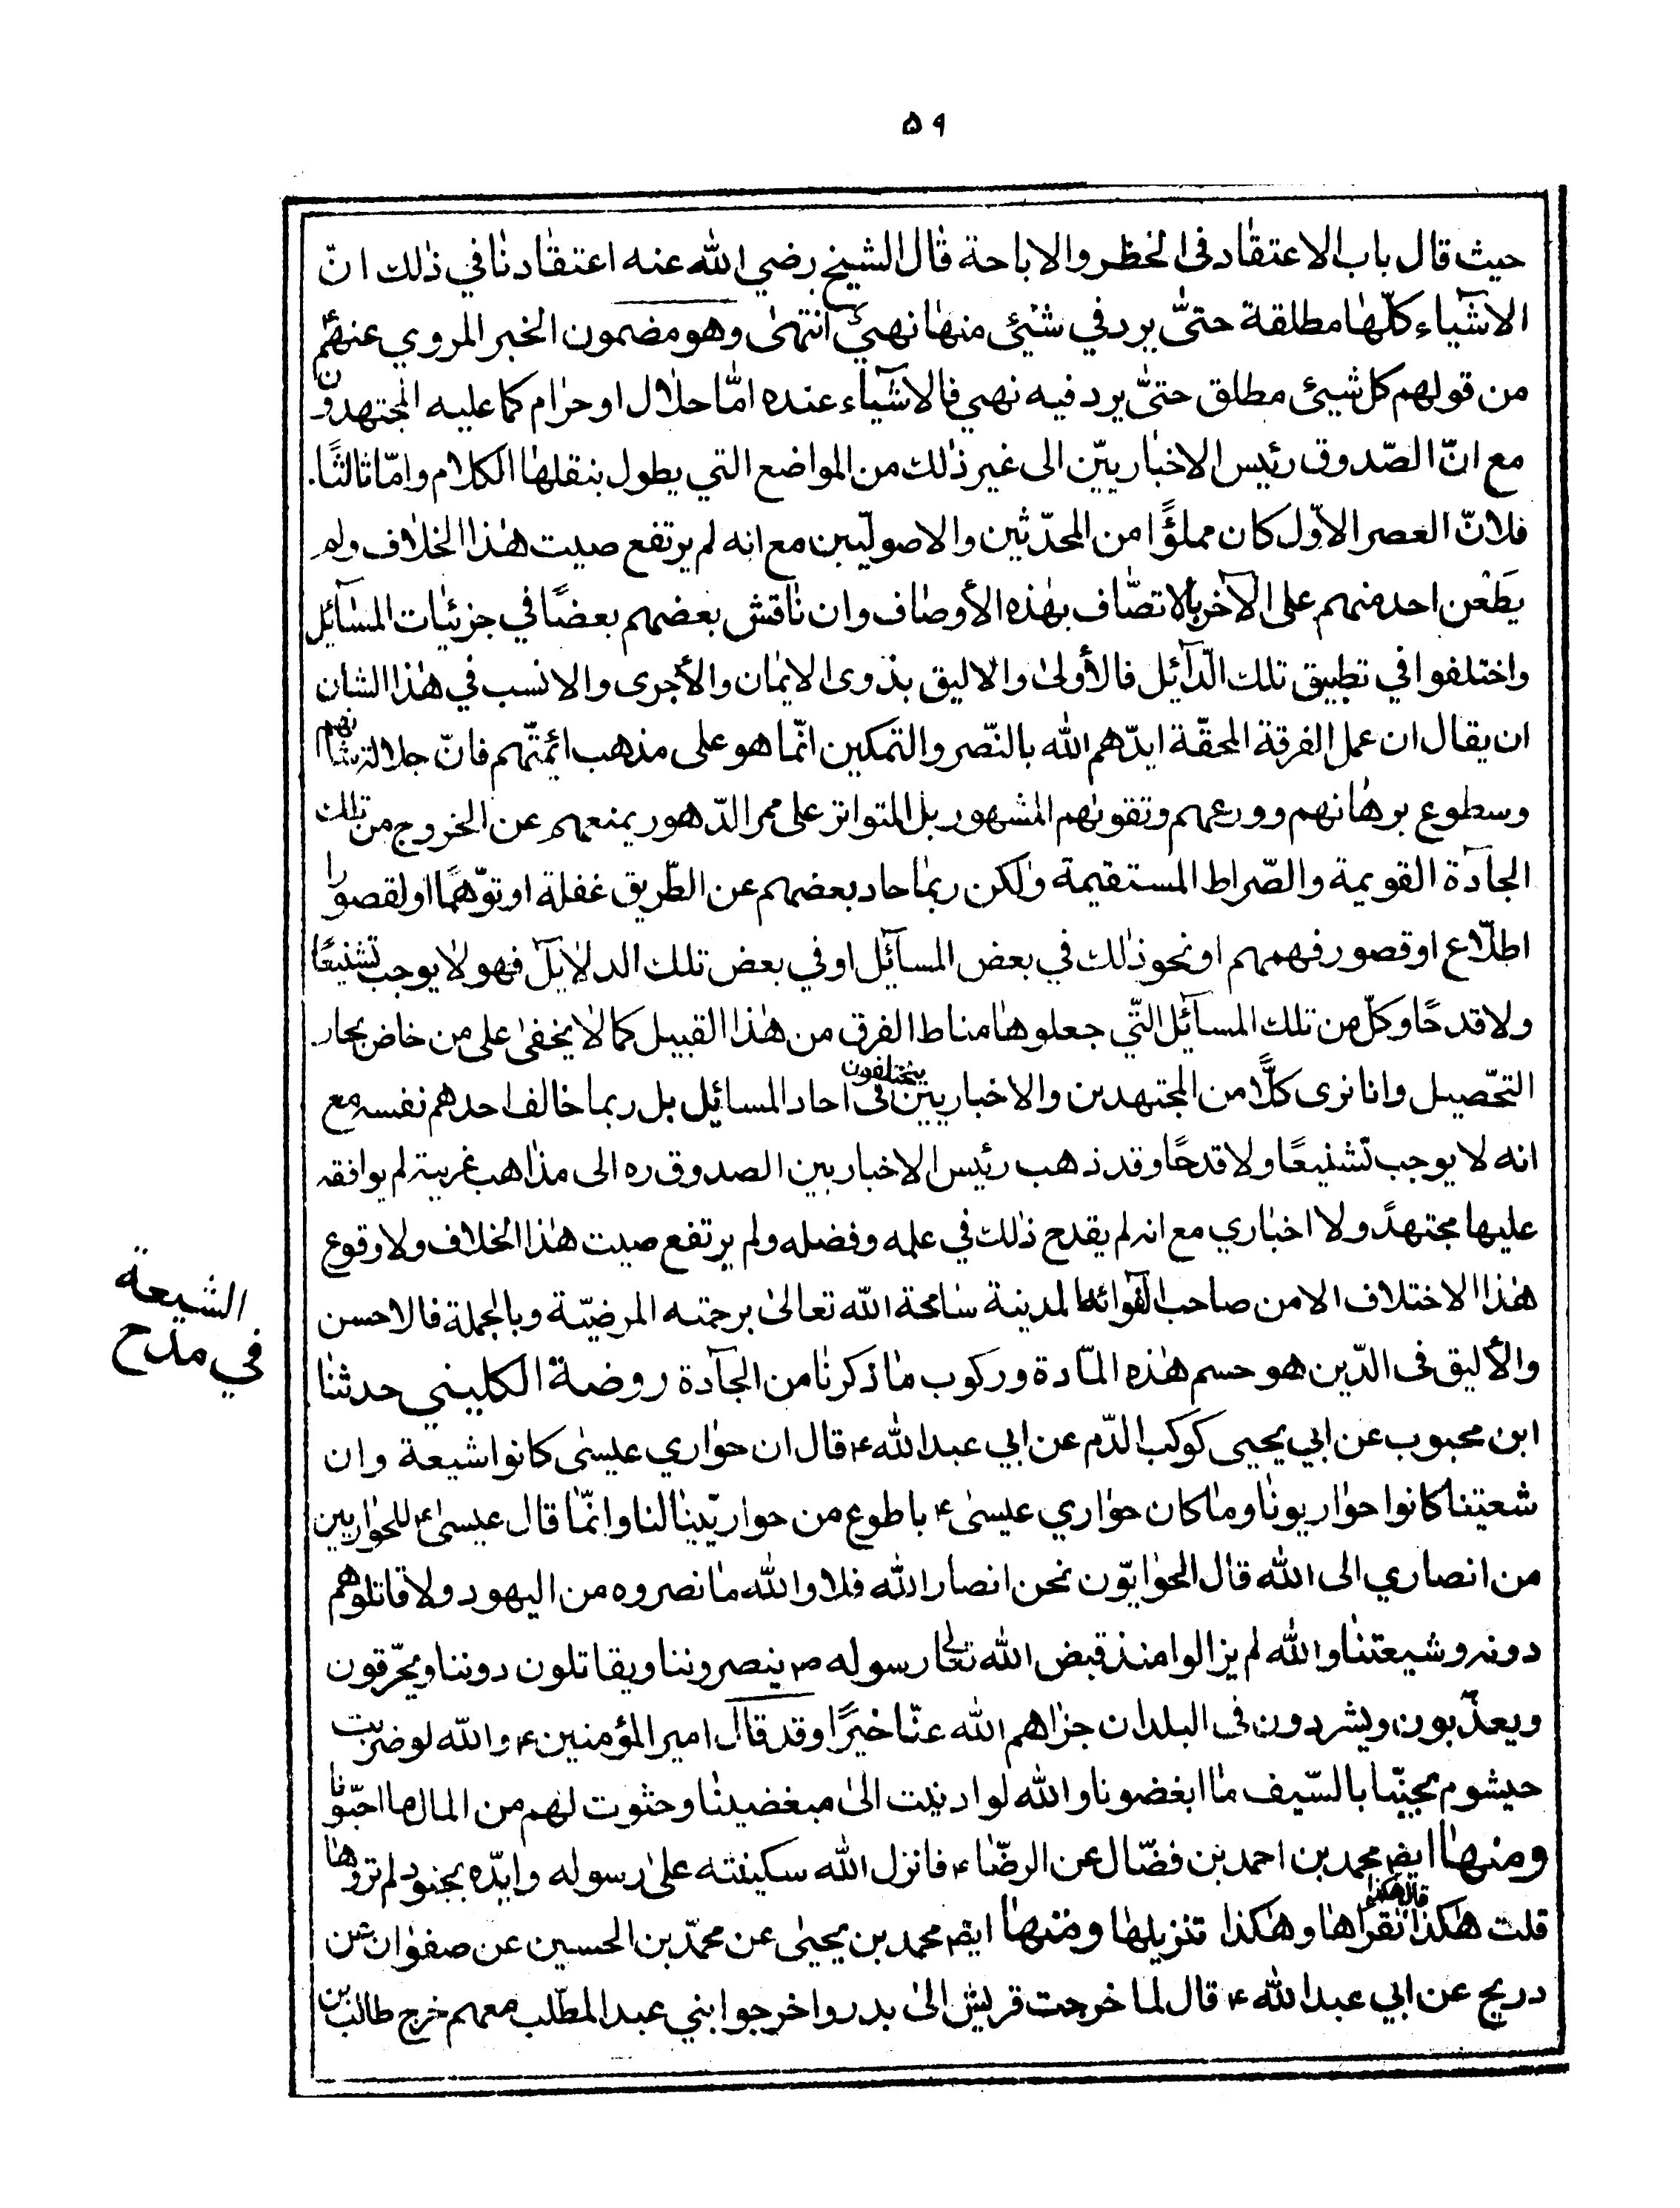 ٥٩
حيث قال باب الاعتقاد فى الحظر والاباحة قال الشيخ رضي الله عنه اعتقادنا في ذلك انّ
الاشياء كلّها مطلقة حتىّ يرد في شيئ منها نهيئ انتهى وهو مضمون الخبر المروي عنهم ع
من قولهم كل شيئ مطلق حتىّ يرد فيه نهى فالاشيآء عنده امّا حلال او حرام كما عليه المجتهدون
مع انّ الصّدوق رئيس الاخباريّين الى غير ذلك من المواضع التي يطول بنقلها الكلام وامّا ثالثًا
فلانّ العصر الاوّل كان مملؤًا من المحدّثين والاصوليّين مع انه لم يرتفع صيت هذا الخلاف ولم
يَطْعن احد منهم على الآخر بالاتصّاف بهذه الأوصاف وان ناقش بعضهم بعضًا في جزئيات المسآئل
واختلفوا في تطبيق تلك الدّآئل فالأولى والاليق بذوى الايمان والأجرى والانسب في هذا الشان
ان يقال ان عمل الفرقة المحقّة ايدّهم الله بالنّصر والتمكين انّما هو على مذهب ائمتّهم فانّ جلالة شأنهم
وسطوع برهانهم وورعهم وتقوىهم المشهور بل المتواتر على ممر الدّهور يمنعهم عن الخروج من تلك
الجآدة القويمة والصّراط المستقيمة ولكن ربما حاد بعضهم عن الطّريق غفلة او توّهمًا او لقصور
اطلّاع او قصور فهمهم او نحو ذلك في بعض المسآئل او في بعض تلك الدلايل فهو لا يوجب تشنيعًا
ولا قدحًا وكلّ من تلك المسآئل التّي جعلوها مناط الفرق من هذا القبيل كما لا يخفى على من خاض بحار
التحّصيل وانا نرى كلًّا من المجتهدين والاخباريين يختلفون فى احاد المسائل بل ربما خالف احدهم نفسه مع
انه لا يوجب تشنيعًا ولا قدحًا وقد ذهب رئيس الاخباريين الصدوق ره الى مذاهب غريبة لم يوافقه
عليها مجتهدً ولا اخباري مع انه لم يقدح ذلك في علمه وفضله ولم يرتفع صيت هذا الخلاف ولا وقوع
هذا الاختلاف الا من صاحب الفوائد المدينة سامحة الله تعالى برحمته المرضيّة وبالجملة فالاحسن
والأليق فى الدّين هو حسم هذه المادة وركوب ما ذكرنا من الجآدة روضة الكليني حدثنا
ابن محبوب عن ابي يحيى كوكب الدّم عن ابي عبد الله ع قال ان حواري عيسى كانوا شيعة وان
شعتينا كانوا حواريونا وما كان حواري عيسى ع باطوع من حواريّينا لنا وانّما قال عيسى ع للحواريين
من انصاري الى الله قال الحوايّون نحن انصار الله فلا والله ما نصروه من اليهود ولا قاتلوهم
دونه وشيعتنا والله لم يزالوا منذ قبض الله تعالى رسوله ص ينصروننا ويقاتلون دوننا ويحرّقون
ويعذّبون ويشردون فى البلدان جزاهم الله عنّا خيرًا وقد قال امير المؤمنين ع والله لو ضربت
حيشوم محبيّنا بالسّيف ما ابغضونا والله لو ادنيت الى مبغضينا وحثوت لهم من المال ما احبّونا
ومنها ايضا محمد بن احمد بن فضّال عن الرضّا ع فانزل الله سكينته على رسوله وايدّه بجنود لم تروها
قلت هكذا قال هكذا نقراها وهكذا تنزيلها ومنها ايضا محمد بن يحيى عن محمّد بن الحسين عن صفوان عن
دريج عن ابي عبد الله ع قال لما خرجت قريش الى بدر واخرجوا بني عبد المطّلب معهم خرج طالب بن
الشيعة
في مدح